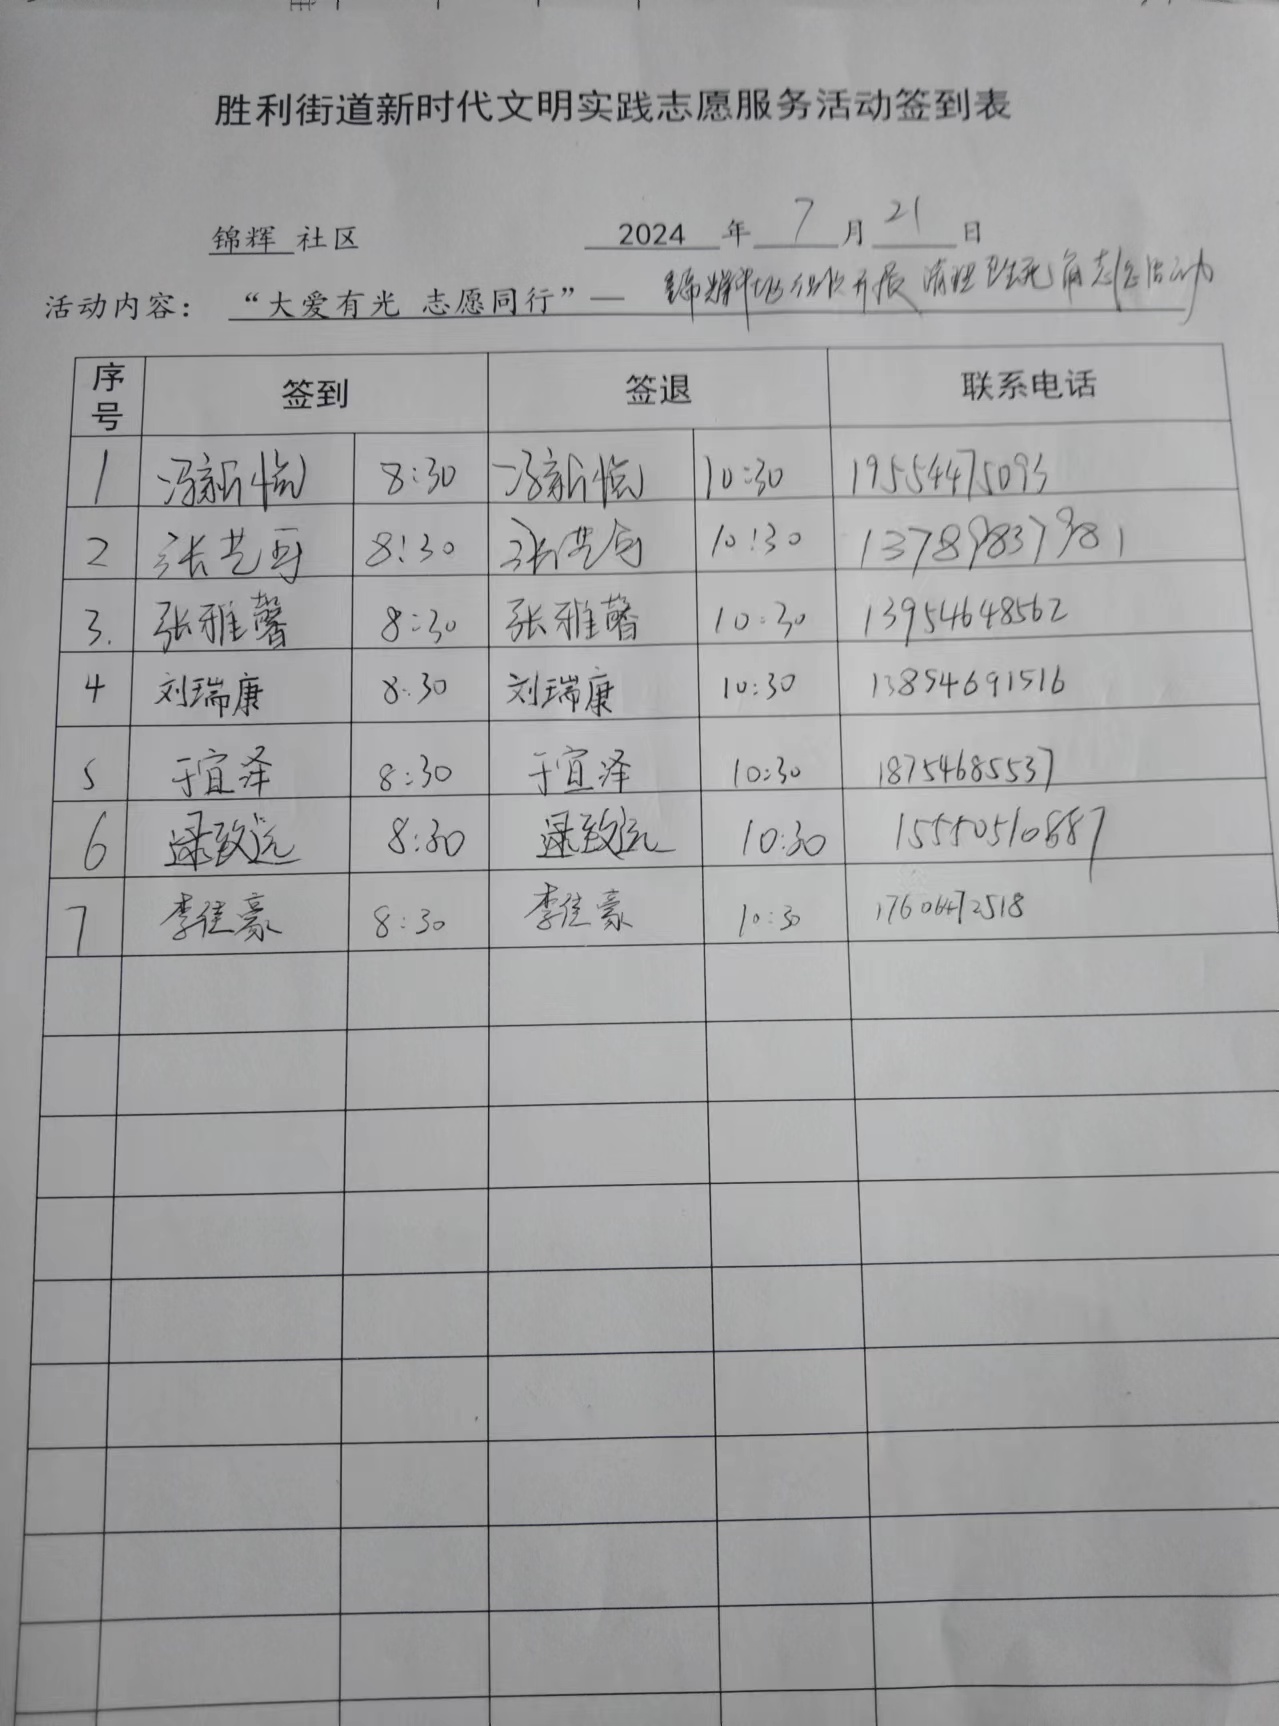 胜利街道新时代文明实践志愿服务活动签到表
锦辉 社区 2024 年 7 月 21 日
活动内容： “大爱有光 志愿同行”— 锦辉社区组织开展清理卫生死角志愿活动
序号 签到 签退 联系电话
1 冯新 8:30 冯新 10:30 19554475093
2 张艺 8:30 张艺 10:30 13789837981
3. 张雅馨 8:30 张雅馨 10:30 13954648562
4 刘瑞康 8:30 刘瑞康 10:30 13854691516
5 于宜泽 8:30 于宜泽 10:30 18754685537
6 逯致远 8:30 逯致远 10:30 15550510887
7 李佳豪 8:30 李佳豪 10:30 17606472518